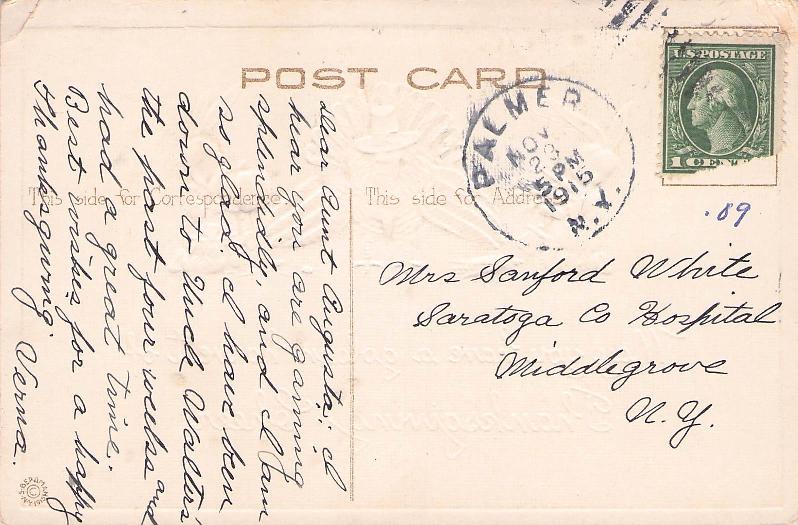 POST CARD
U.S. POSTAGE
1 CENT
PALMER
NOV
23
5 PM
1915
N.Y.
This side for Correspondence.
This side for Address.
.89
Dear Aunt Augusta; I
hear you are gaining
splendidly, and I am
so glad. I have been
down to Uncle Walters'
the past four weeks and
had a great time.
Best wishes for a happy
Thanksgiving. Verna.
Mrs Sanford White
Saratoga Co Hospital
Middlegrove
N.Y.
Thanksgiving